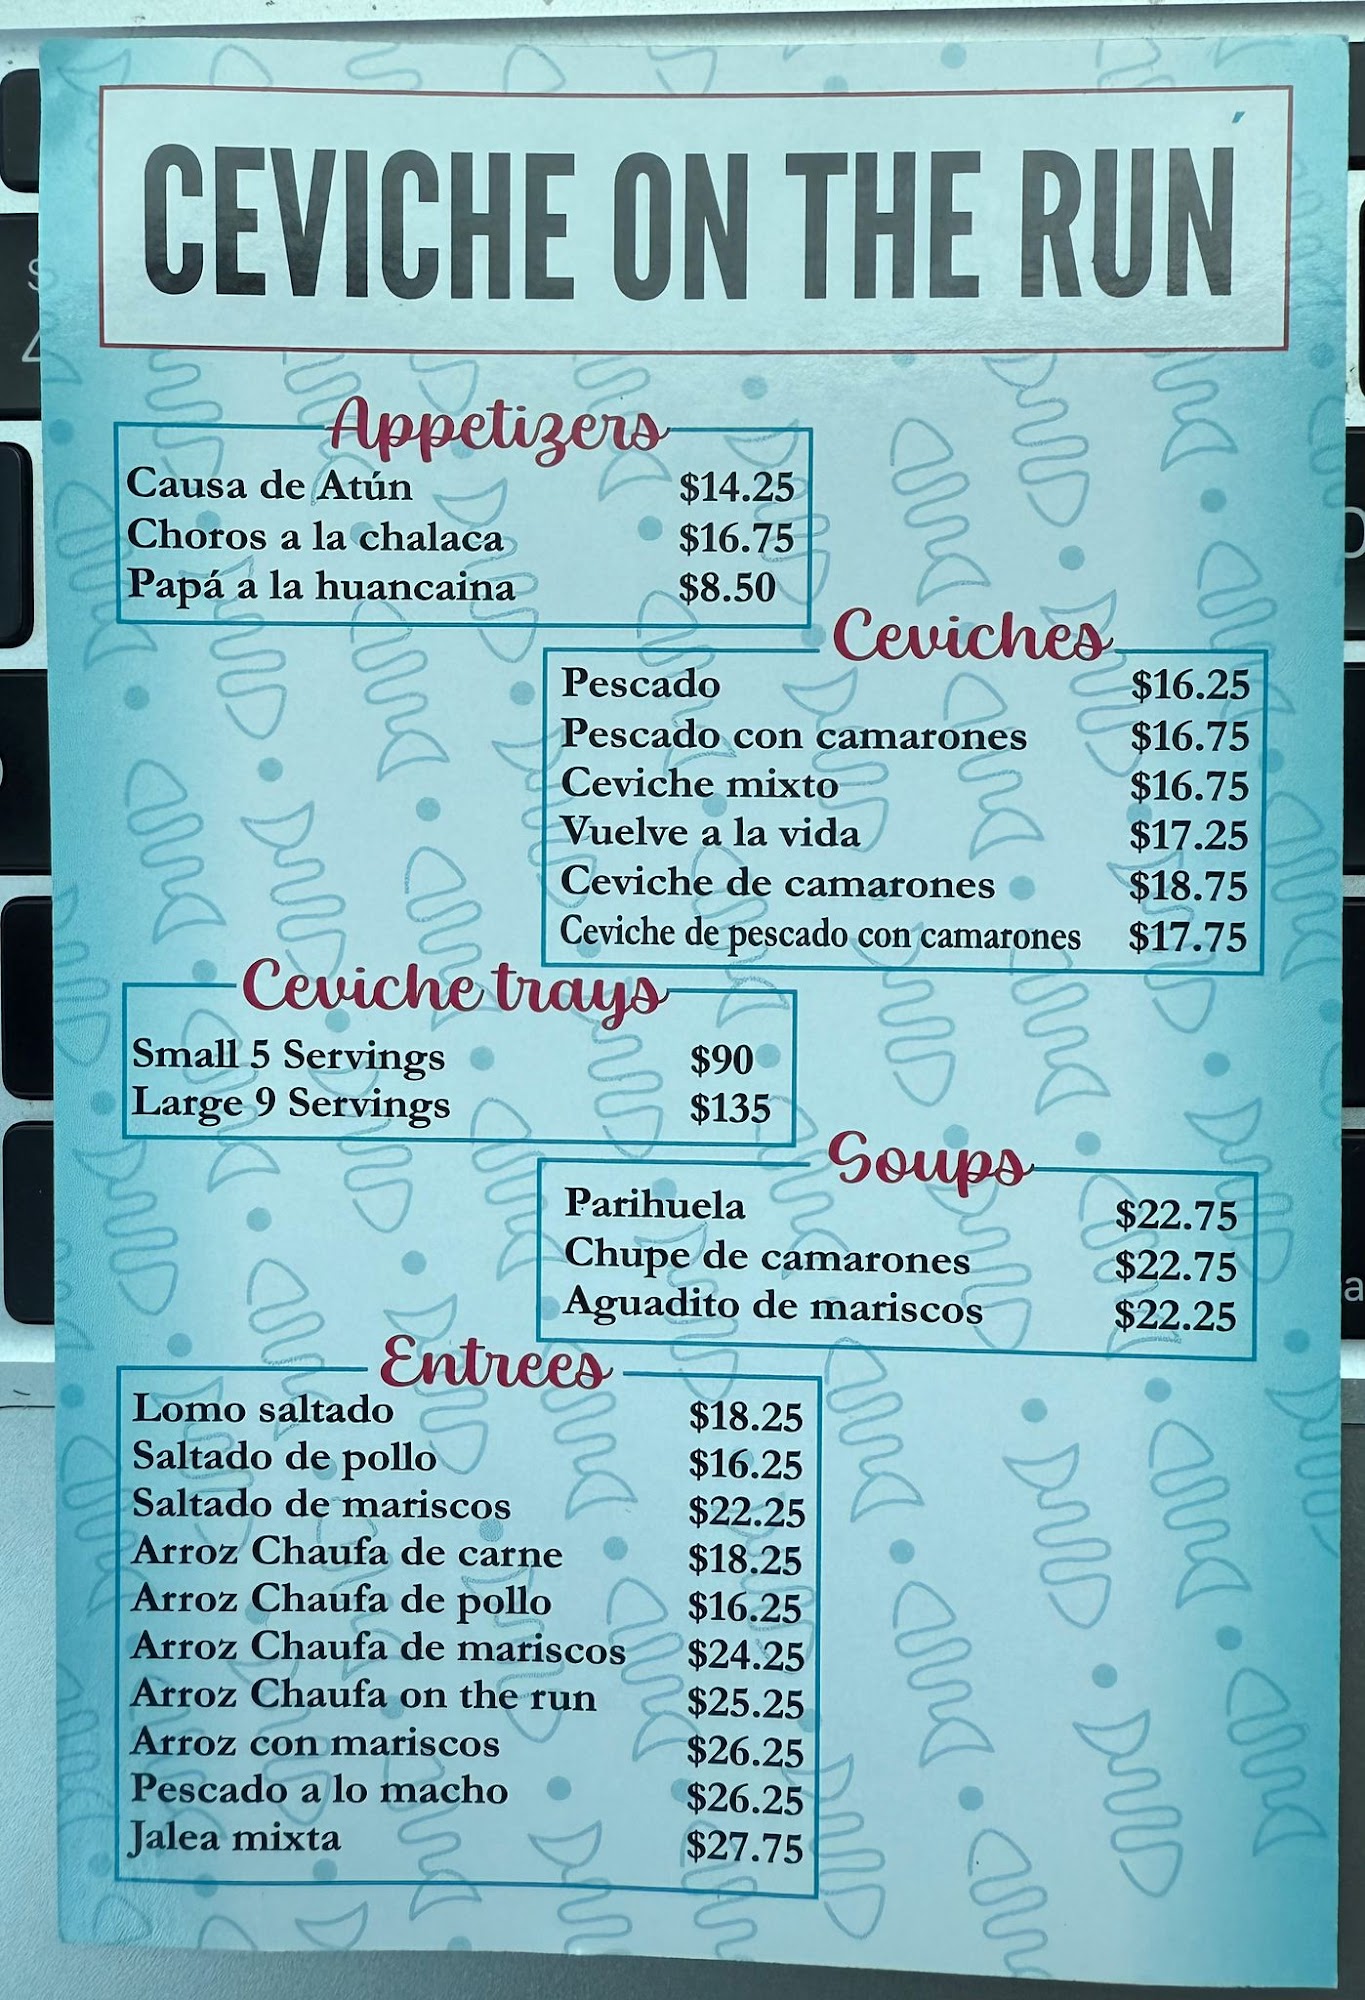 CEVICHE ON THE RUN
Appetizers
Causa de Atún $14.25
Choros a la chalaca $16.75
Papá a la huancaina $8.50
Ceviches
Pescado $16.25
Pescado con camarones $16.75
Ceviche mixto $16.75
Vuelve a la vida $17.25
Ceviche de camarones $18.75
Ceviche de pescado con camarones $17.75
Ceviche trays
Small 5 Servings $90
Large 9 Servings $135
Soups
Parihuela $22.75
Chupe de camarones $22.75
Aguadito de mariscos $22.25
Entrees
Lomo saltado $18.25
Saltado de pollo $16.25
Saltado de mariscos $22.25
Arroz Chaufa de carne $18.25
Arroz Chaufa de pollo $16.25
Arroz Chaufa de mariscos $24.25
Arroz Chaufa on the run $25.25
Arroz con mariscos $26.25
Pescado a lo macho $26.25
Jalea mixta $27.75